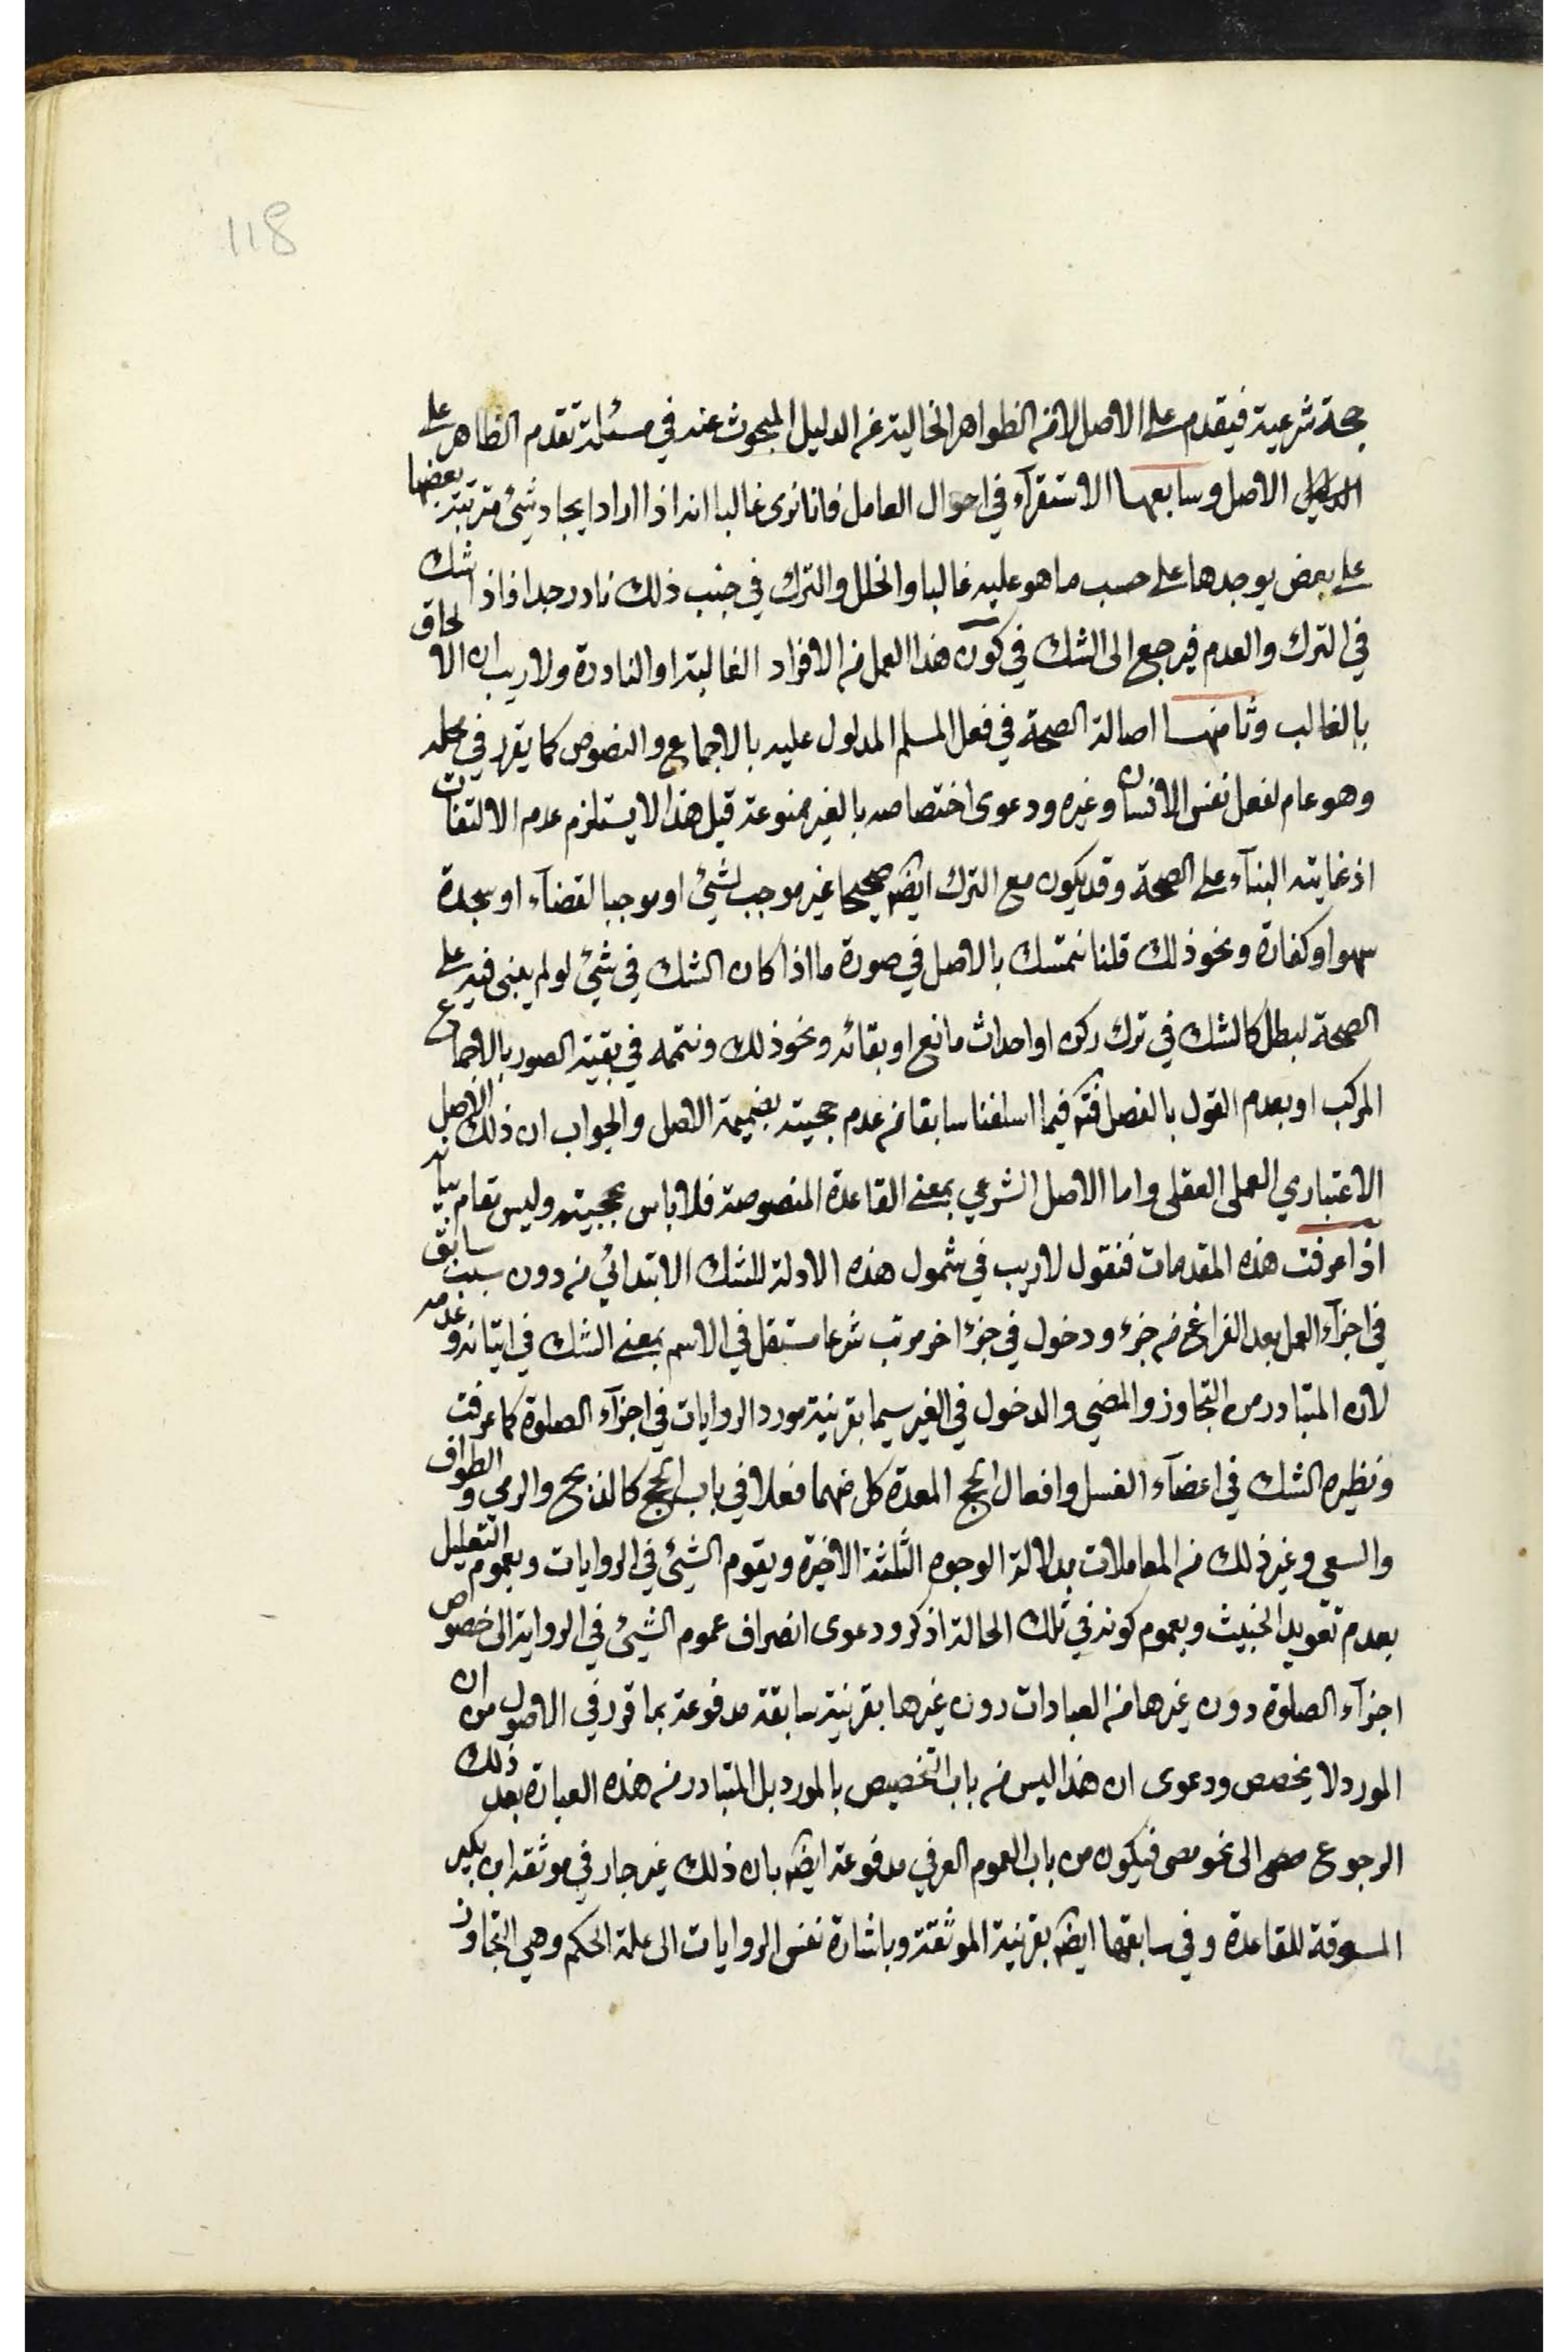 118
حجة شرعية فيقدم على الاصل لا من الظواهر الخالية عن الدليل المبحوث عنه في مسئلة تقدم الظاهر على
الاصل وسابعها الاستقرآء في احوال العامل فانا نرى غالبا انه اذا اراد ايجاد شيء مترتبة بعضها
على بعض يوجدها على حسب ما هو عليه غالبا والخلل والترك في جنب ذلك نادر جدا فاذا شك
في الترك والعدم فيرجع الى الشك في كون هذا العمل من الافراد الغالبة او النادرة ولا ريب ان الالحاق
بالغالب وثامنها اصالة الصحة في فعل المسلم المدلول عليه بالاجماع والنصوص كما يقرر في محله
وهو عام لفعل نفس الانسان وغيره ودعوى اختصاصه بالغير ممنوعة قيل هذا لا يستلزم عدم الالتفات
اذ غايته البنآء على الصحة وقد يكون مع الترك ايضه صحيحا غير موجب لشيء او موجبا لقضآء او سجدة
سهو او كفارة ونحو ذلك قلنا نتمسك بالاصل في صورة ما اذا كان الشك في شيء لو لم يبنى فيه على
الصحة لبطل كالشك في ترك ركن او احداث مانع او بقائه ونحو ذلك ونتمه في بقية الصور بالاجماع
المركب او بعدم القول بالفصل فتم فيما اسلفنا سابقا من عدم حجيته بضميمة الاصل والجواب ان ذلك الاصل
الاعتباري العملى العقلى واما الاصل الشرعي بمعنى القاعدة المنصوصة فلا باس بحجيته وليس مقام بيانه
اذا عرفت هذه المقدمات فنقول لا ريب في شمول هذه الادلة للشك الابتدائي من دون سبب سابق
في اجزآء العمل بعد الفراغ من جزء ودخول في جزء اخر مرتب شرعا مستقل في الاسم بمعنى الشك في اتيانه وعدمه
لانه المتبادر من التجاوز والمضي والدخول في الغير سيما بقرينة مورد الروايات في اجزآء الصلوة كما عرفت
ونظيره الشك في اعضآء الغسل وافعال الحج المعدة كل منهما فعلا في باب الحج كالذبح والرمي والطواف
والسعي وغير ذلك من المعاملات بدلالة الوجوه الثلثة الاخيرة وبعموم الشيء في الروايات وبعموم التعليل
بعدم تعويد الخبيث وبعموم كونه في تلك الحالة اذكر ودعوى انصراف عموم الشيء في الرواية الى خصوص
اجزآء الصلوة دون غيرها من العبادات دون غيرها بقرينة سابقة مدفوعة بما قرر في الاصول من ان
المورد لا يخصص ودعوى ان هذا ليس من باب التخصيص بالمورد بل المتبادر من هذه العبارة بعد ذلك
الرجوع الى نحو مضى فيكون من باب العموم العرفي مدفوعة ايضه بان ذلك غير جار في موثقة ابن بكير
المسوقة للقاعدة وفي سابقها ايضه بقرينة الموثقة وباشارة نفس الروايات الى علة الحكم وهي التجاوز